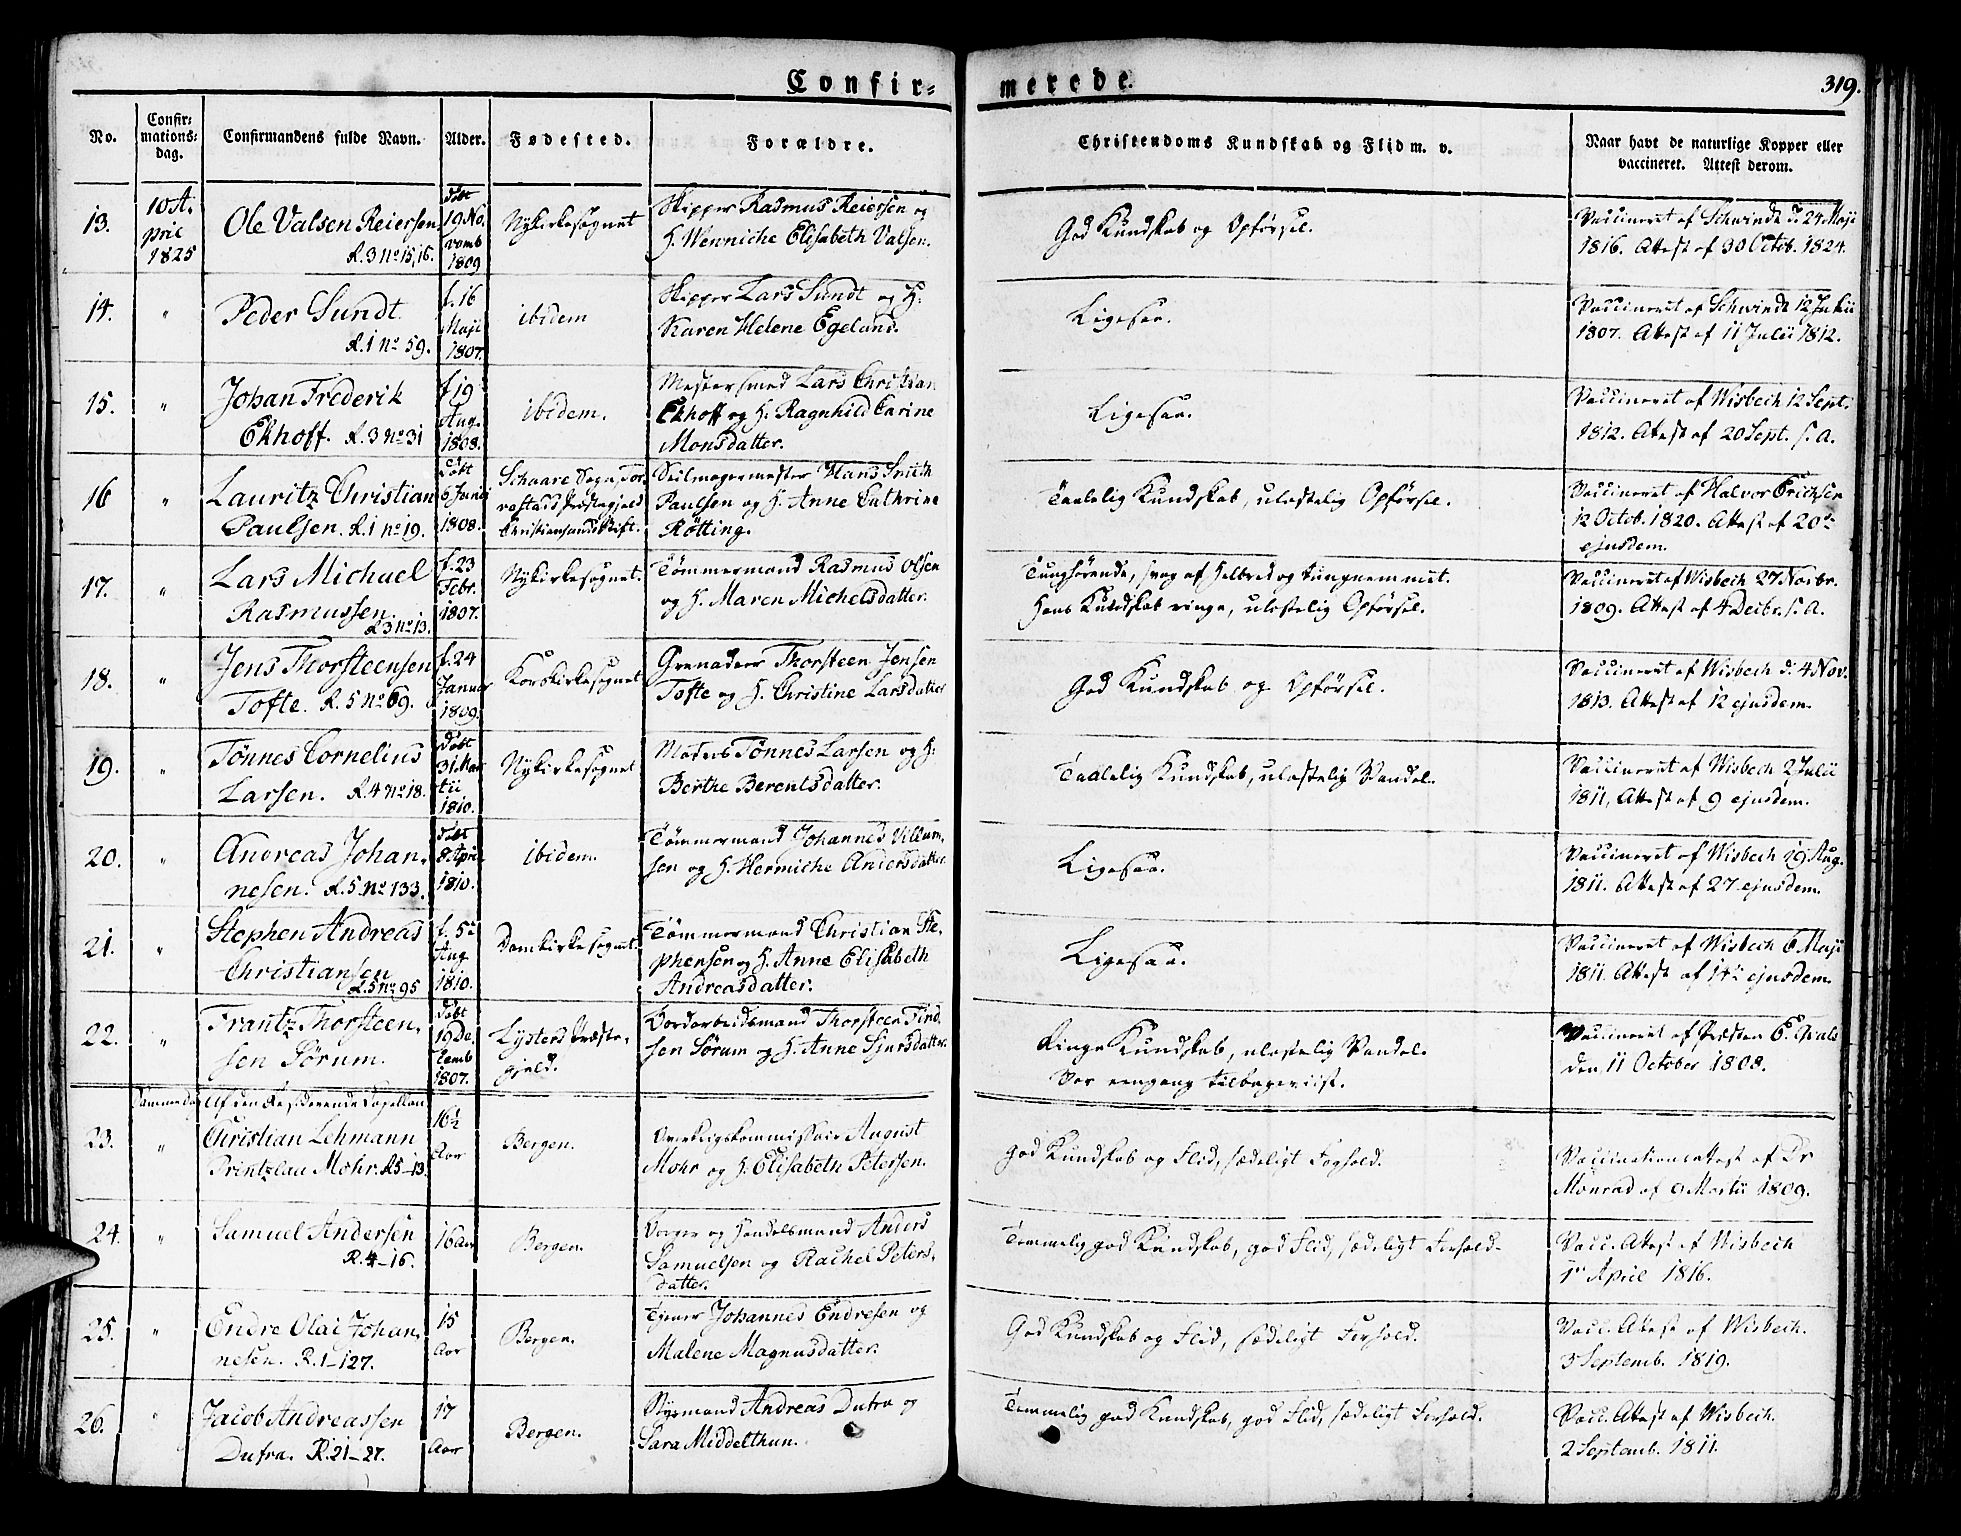 Confir-
merede.
319.
No.
Confir-
mations-
dag.
Confirmandens fulde Navn.
Alder.
Fødested.
Forældre.
Christendoms Kundskab og Flid m. v.
Naar havt de naturlige Kopper eller
vaccineret. Attest derom.
13.
10 A-
pril
1825
Ole Valsen Reiersen
R.3 No 15,16.
døbt
19 No-
vemb
1809
Nykirkesognet
Skipper Rasmus Reiersen og
H. Wenniche Elisabeth Valsen.
God Kundskab og Opførsel.
Vaccineret af Schwindt d 24 Maji
1816. Attest af 30 Octob. 1824.
14.
"
Peder Sundt
R.1 No 59.
f. 16
Maji
1807.
ibidem
Skipper Lars Sundt og H.
Karen Helene Egeland.
Ligesaa.
Vaccineret af Schwindt 12 Julii
1807. Attest af 11 Julii 1812.
15.
"
Johan Frederik
Ekhoff. R.3 No 31
f. 19
Aug.
1808.
ibidem.
Mestersmed Lars Christian
Ekhoff og H. Ragnhild Carine
Monsdatter.
Ligesaa.
Vaccineret af Wisbech 12 Sept.
1812. Attest af 20 Sept. s. a.
16
"
Lauritz Christian
Paulsen. R.1 No 19.
døbt
6 Junij
1808.
Schaare Sogn, Tor-
vestad Præstegjeld
Christiansandsstift.
Seilmagermester Hans Smith
Paulsen og H. Anne Cathrine
Rötting.
Taalelig Kundskab, ulastelig Opførsel.
Vaccineret af Halvor Erichsen
12 Octob. 1820. Attest af 20de
ejusdem.
17.
"
Lars Michael
Rasmussen.
R.3 No 13.
f. 23
Febr.
1807.
Nykirkesognet.
Tømmermand Rasmus Olsen
og H. Maren Michelsdatter.
Tunghørende, svag af Helbred og tungnemmet.
Hans Kundskab ringe, ulastelig Opførsel.
Vaccineret af Wisbech 27 Novbr.
1809. Attest af 4 Decbr. s. a.
18.
"
Jens Thorsteensen
Tofte. R.5 No 69.
f. 24
Januar
1809.
Korskirkesognet
Grenadeer Thorsteen Jensen
Tofte og H. Christine Larsdatter
God Kundskab og Opførsel.
Vaccineret af Wisbech d. 4 Nov.
1813. Attest af 12 ejusdem.
19.
"
Tønnes Cornelius
Larsen. R.4 No 18.
døbt
31 Mar-
tii
1810.
Nykirkesognet
Matros Tønnes Larsen og H.
Berthe Berentsdatter.
Taalelig Kundskab, ulastelig Vandel.
Vaccineret af Wisbech 2 Julii
1811, Attest af 9 ejusdem.
20.
"
Andreas Johan-
nesen. R.5 No 133.
døbt
8 April
1810.
ibidem.
Tømmermand Johannes Villum-
sen og H. Hermiche Andersdatter.
Ligesaa.
Vaccineret af Wisbech 19 Aug.
1811. Attest af 27 ejusdem.
21.
"
Stephen Andreas
Christiansen
R.5 No 95
f. 5te
Aug.
1810.
Domkirkesognet.
Tømmermand Christian Ste-
phensen og H. Anne Elisabeth
Andreasdatter.
Ligesaa.
Vaccineret af Wisbech 6 Maji
1811. Attest af 14de ejusdem.
22.
"
Frantz Thorsteen-
sen Sørum.
døbt
19 De-
cemb
1807.
Lysters Præste-
gjeld.
Bordarbeidsmand Thorsteen Find-
sen Sørum og H. Anne Sjursdatter.
Ringe Kundskab, ulastelig Vandel.
Var eengang tilbageviist.
Vaccineret af Præsten
den 11 October 1808.
Samme dag Af den Residerende Capellan
23.
"
Christian Lehmann
Printzlau Mohr. R.5-13.
16½
Aar
Bergen.
Overkrigskommissair August
Mohr og H. Elisabeth Petersen.
God Kundskab og Flid, sædeligt Forhold.
Vaccinationsattest af Dr
Monrad af 9 Martii 1809.
24.
"
Samuel Andersen
R.4-16.
16 Aar
Bergen.
Borger og Handelsmand Anders
Samuelsen og Rachel Peters-
datter.
Temmelig god Kundskab, god Flid, sædeligt Forhold.
Vacc. Attest af Wisbech
1ste April 1816.
25.
"
Endre Olai Johan-
nesen. R.1-127.
15
Aar
Bergen.
Tjener Johannes Endresen og
Malene Magnusdatter.
God Kundskab og Flid, sædeligt Forhold.
Vacc. Attest af Wisbech.
3 Septemb. 1819.
26.
"
Jacob Andreassen
Dufra. R.21-27.
17
Aar
Bergen.
Styrmand Andreas Dufra og
Sara Middelthun.
Temmelig god Kundskab, god Flid, sædeligt Forhold.
Vacc. Attest af Wisbech.
2 Septemb. 1811.